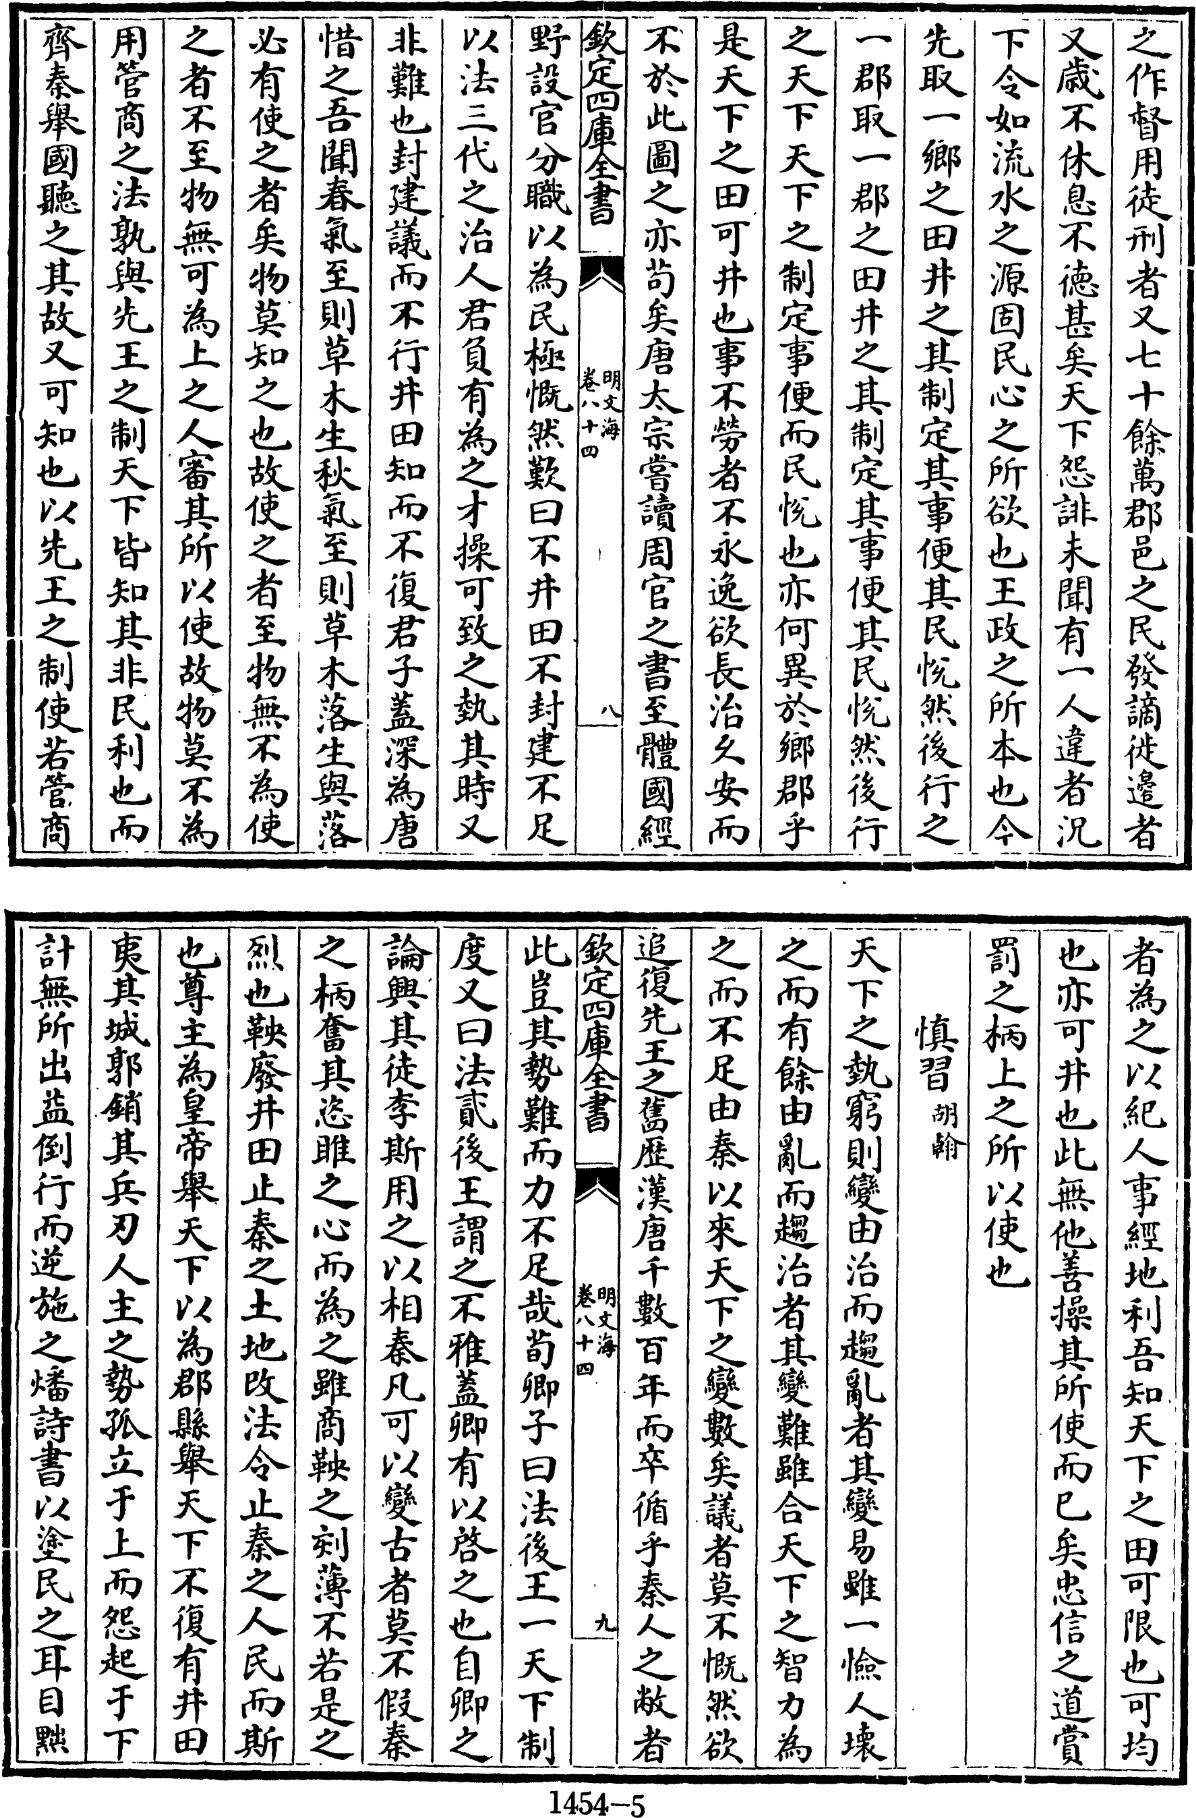 之作督用徒刑者又七十餘萬郡邑之民發謫徙邉者
又歲不休息不德甚矣天下怨誹未聞有一人違者況
下令如流水之源固民心之所欲也王政之所本也今
先取一鄉之田井之其制定其事便其民悅然後行之
一郡取一郡之田井之其制定其事便其民悅然後行
之天下天下之制定事便而民悅也亦何異於鄉郡乎
是天下之田可井也事不勞者不永逸欲長治久安而
不於此圖之亦苟矣唐太宗嘗讀周官之書至體國經
欽定四庫全書
明文海
卷八十四
八
野設官分職以為民極慨然歎曰不井田不封建不足
以法三代之治人君負有為之才操可致之埶其時又
非難也封建議而不行井田知而不復君子蓋深為唐
惜之吾聞春氣至則草木生秋氣至則草木落生與落
必有使之者矣物莫知之也故使之者至物無不為使
之者不至物無可為上之人審其所以使故物莫不為
用管商之法孰與先王之制天下皆知其非民利也而
齊秦舉國聽之其故又可知也以先王之制使若管商
者為之以紀人事經地利吾知天下之田可限也可均
也亦可井也此無他善操其所使而已矣忠信之道賞
罰之柄上之所以使也
慎習 胡翰
天下之埶窮則變由治而趨亂者其變易雖一憸人壞
之而有餘由亂而趨治者其變難雖合天下之智力為
之而不足由秦以來天下之變數矣議者莫不慨然欲
追復先王之舊歴漢唐千數百年而卒循乎秦人之敝者
欽定四庫全書
明文海
卷八十四
九
此豈其勢難而力不足哉荀卿子曰法後王一天下制
度又曰法貳後王謂之不雅蓋卿有以啓之也自卿之
論興其徒李斯用之以相秦凡可以變古者莫不假秦
之柄奮其恣睢之心而為之雖商鞅之刻薄不若是之
烈也鞅廢井田止秦之土地改法令止秦之人民而斯
也尊主為皇帝舉天下以為郡縣舉天下不復有井田
夷其城郭銷其兵刃人主之勢孤立于上而怨起于下
計無所出益倒行而逆施之燔詩書以塗民之耳目黜
1454—5